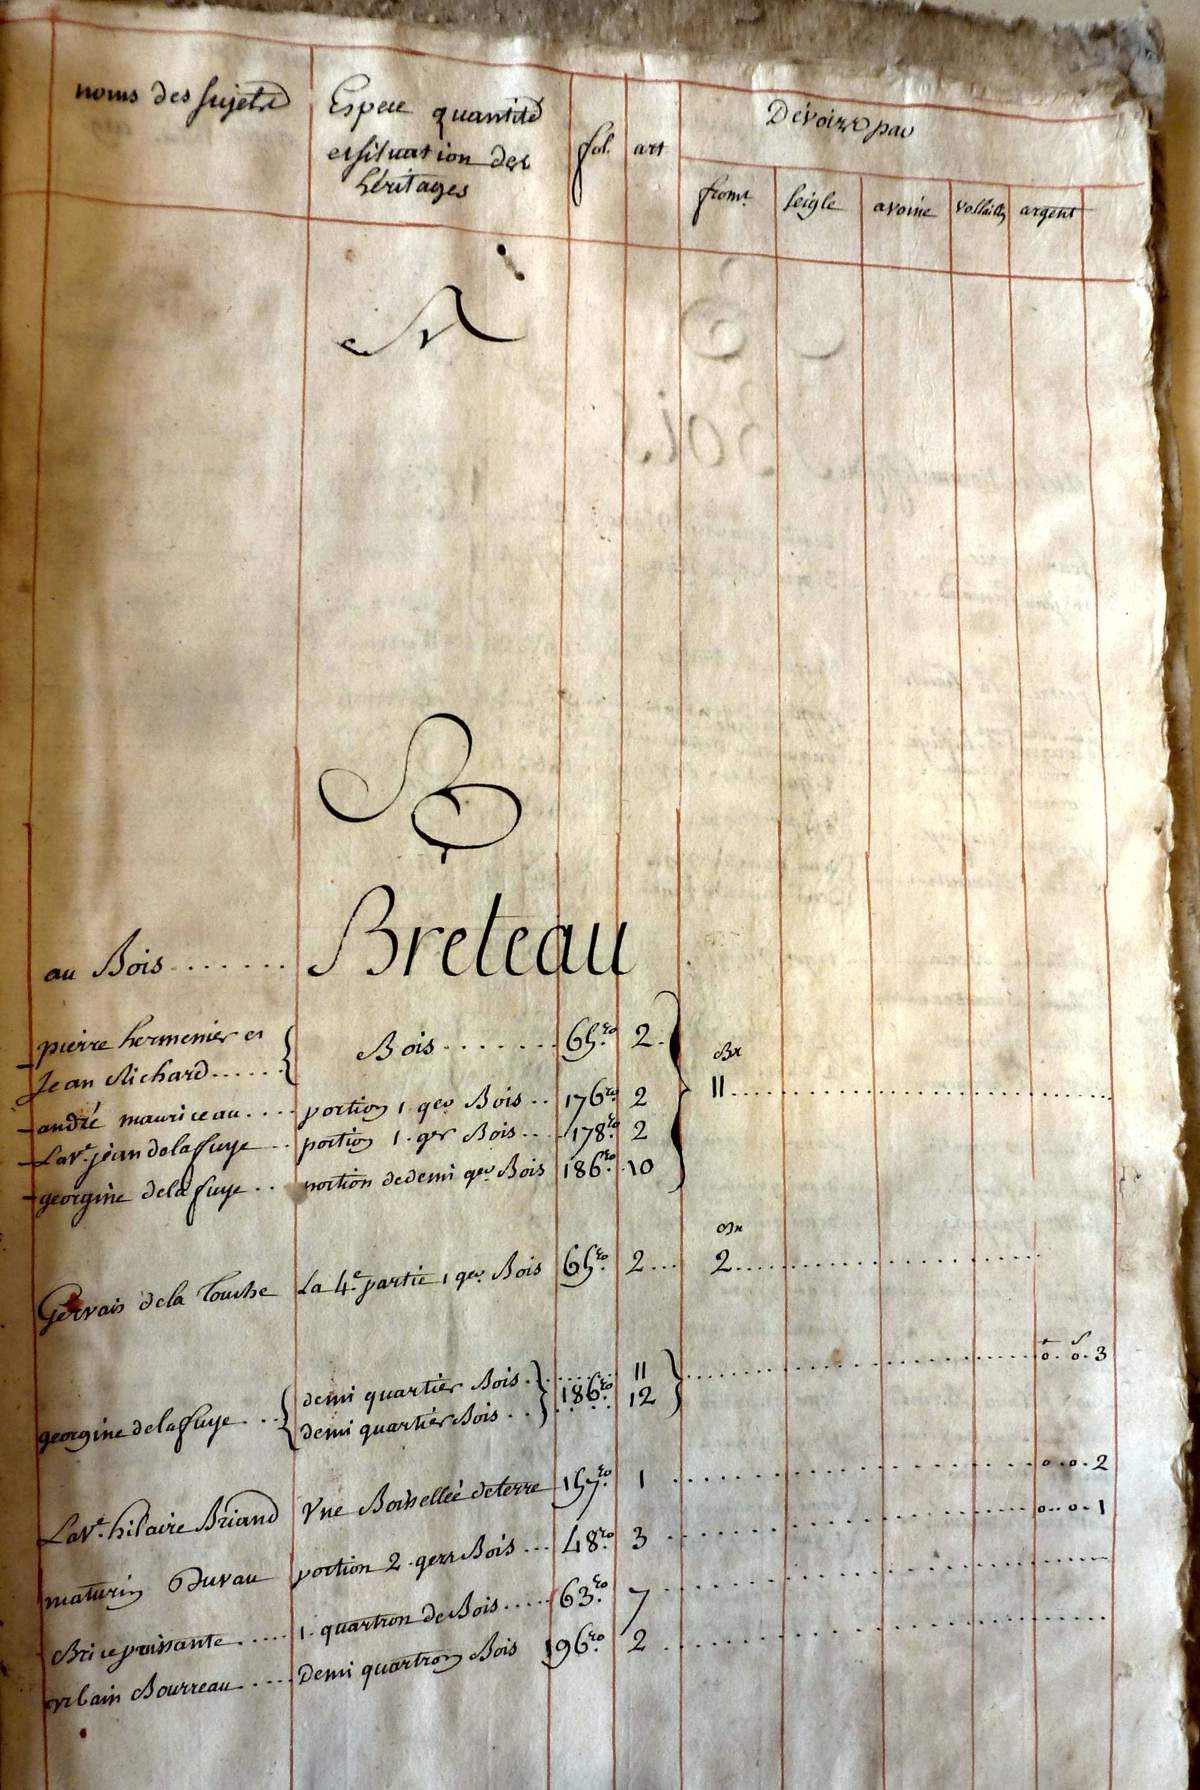 noms des sujets
Espece quantité
et situation des
héritages
fol.
art
Devoirs par
from.t
seigle
avoine
vollailles
argent
au Bois ....... Breteau
pierre hermenier et
Jean Richard ..... Bois ........ 65.ro 2.
Bx
11
andré mauriceau .... portion 1. qer Bois .. 176 ro 2
La v.e jean delafuye .. portion 1. qer Bois .... 178 ro 2
georgine delafuye .. portion de demi qer Bois 186 ro .10
Bx
Gervais de la Touche La 4.e partie 1 qer Bois 65 ro 2 ... 2
georgine delafuye ... demi quartier Bois ....... 11 ....... o. o. 3
demi quartier Bois .. 186 ro 12
La v.e hilaire Briand Une Boisellée de terre 157 ro 1 ....... o. o. 2
maturin Duvau portion 2. qers Bois ... 48 ro 3 ....... o. o. 1
Brice puissante ..... 1. quartron de Bois ..... 63 ro 7
urbain Bourreau .... Demi quartron Bois 196 ro 2